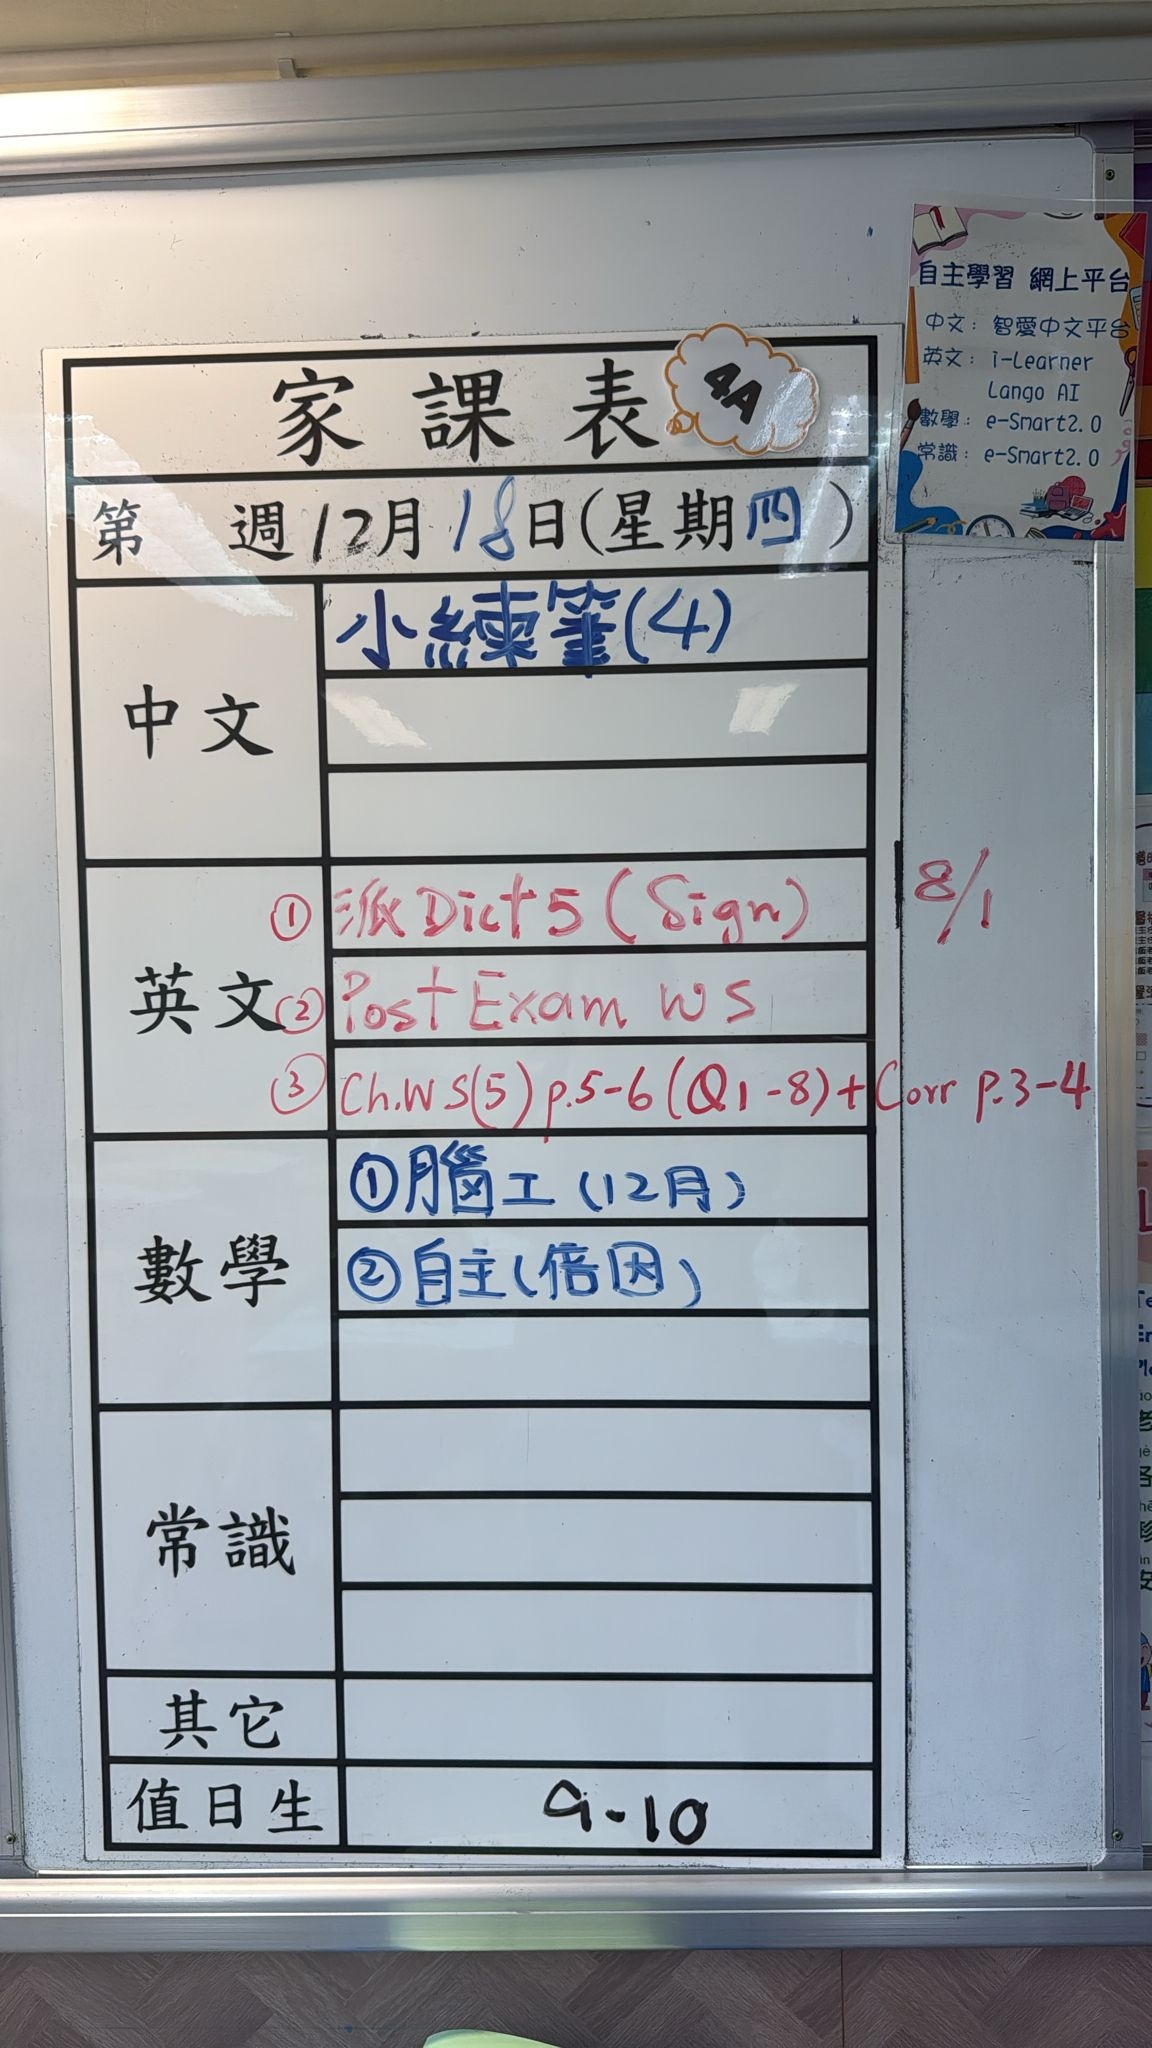 家課表 4A
第 週 12月18日(星期四)
中文
小練筆(4)
英文
① 派Dict 5 (Sign) 8/1
② Post Exam WS
③ Ch.WS(5) p.5-6 (Q1-8) + Corr p.3-4
數學
① 腦工 (12月)
② 自主(倍因)
常識
其它
值日生 9-10
自主學習 網上平台
中文：智愛中文平台
英文：i-Learner
Lango AI
數學：e-Smart2.0
常識：e-Smart2.0